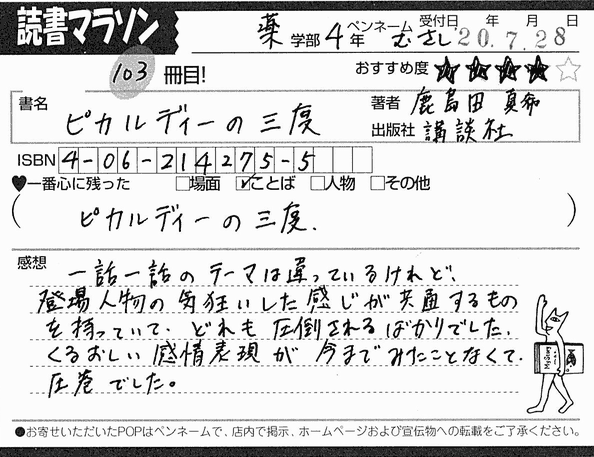 読書マラソン
薬 学部 4 年 ペンネーム むさし 受付日 年 月 日 20.7.28
103 冊目!
おすすめ度 ★★★★☆
書名 ピカルディーの三度
著者 鹿島田 真希
出版社 講談社
ISBN 4-06-214275-5
♥一番心に残った □場面 ☑ことば □人物 □その他
( ピカルディーの三度. )
感想
一話一話のテーマは違っているけれど、
登場人物の気狂いした感じが共通するもの
を持っていて、どれも圧倒されるばかりでした。
くるおしい感情表現が今までみたことなくて、
圧巻でした。
●お寄せいただいたPOPはペンネームで、店内で掲示、ホームページおよび宣伝物への転載をご了承ください。